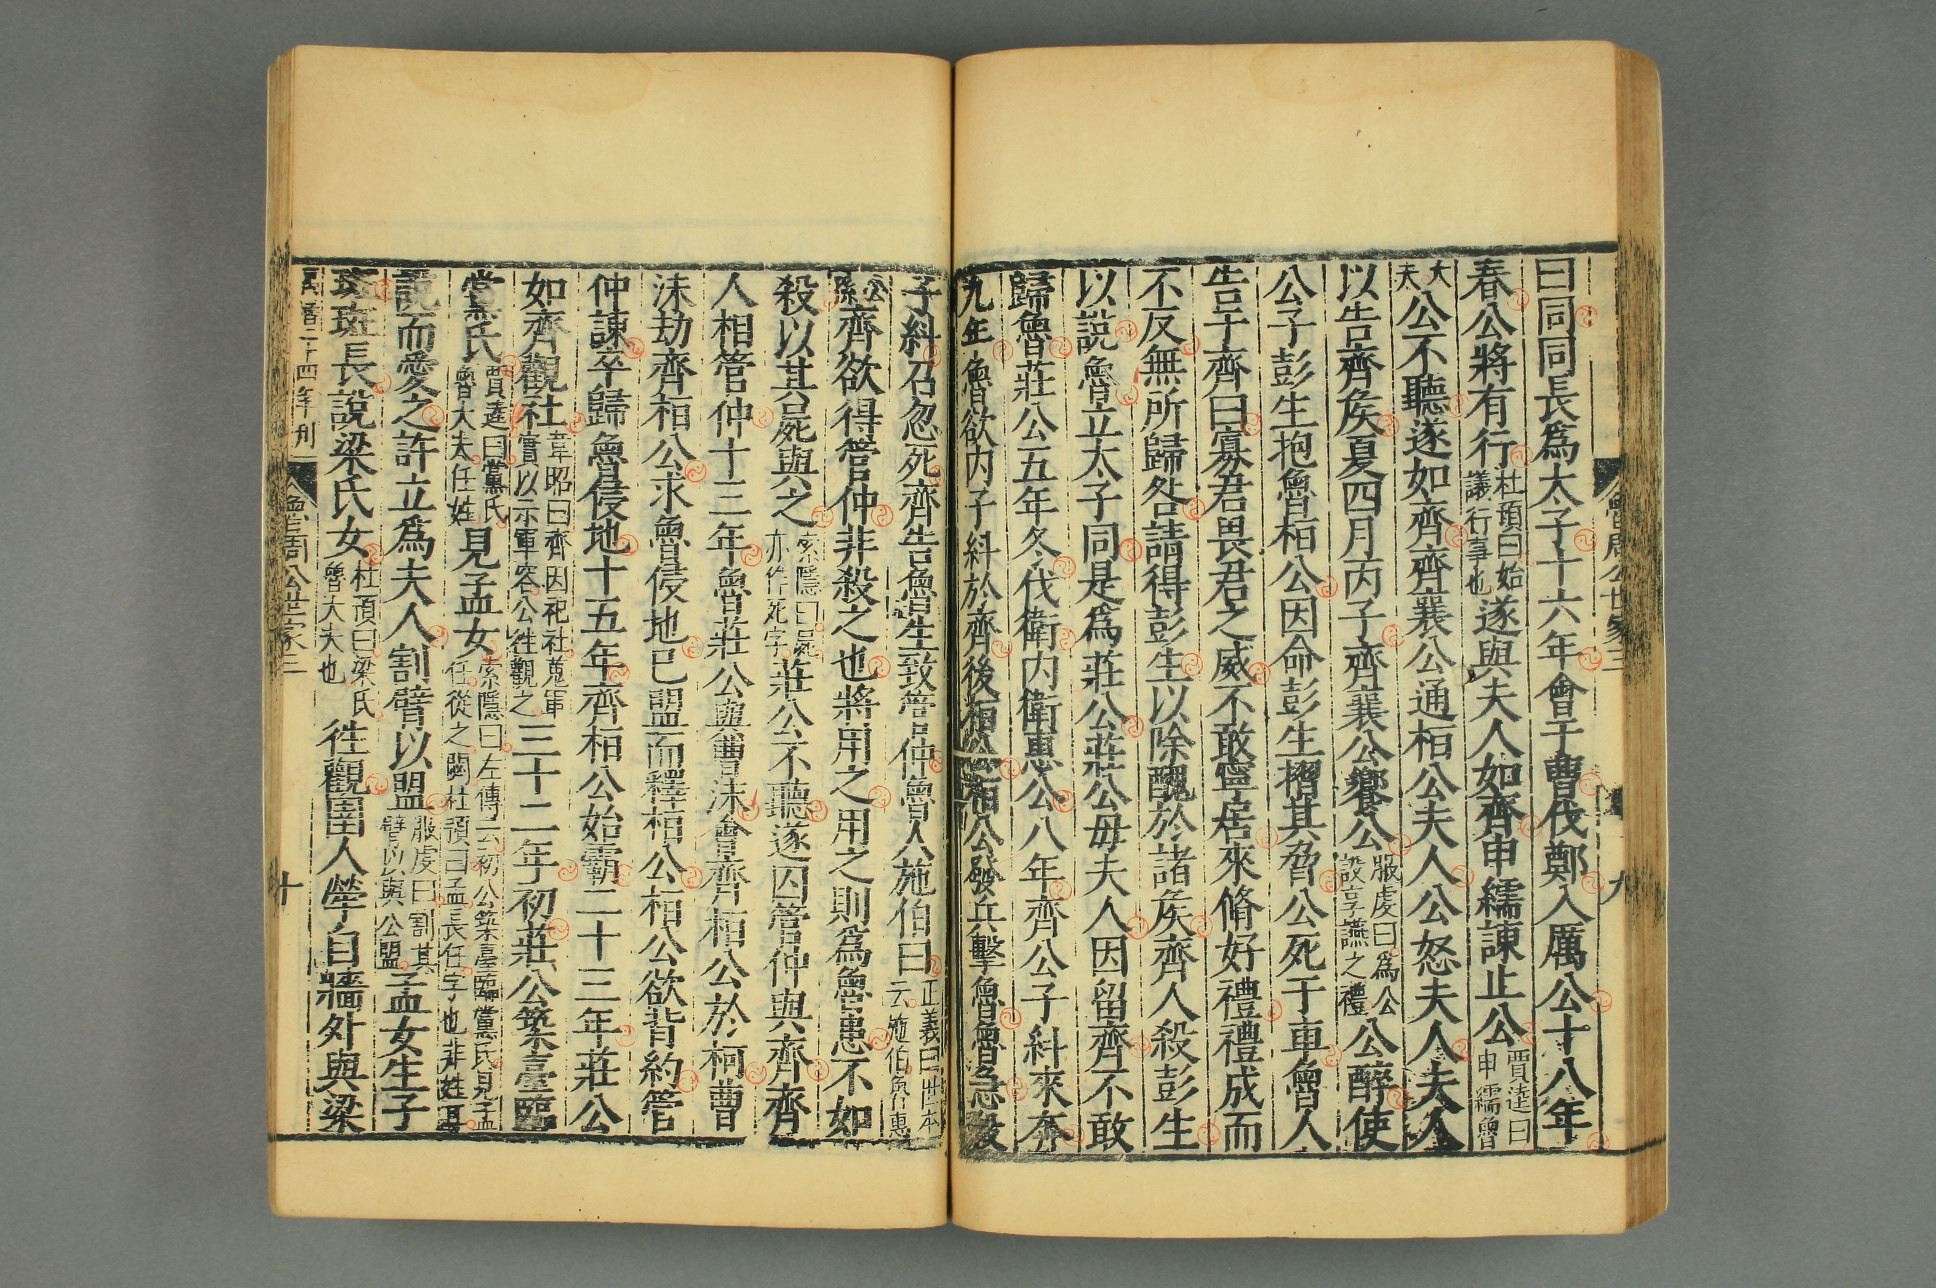 曰同同長爲太子十六年會于曹伐鄭入厲公十八年
春公將有行杜預曰始議行事也遂與夫人如齊申繻諫止公賈逵曰申繻魯
大夫公不聽遂如齊齊襄公通桓公夫人公怒夫人夫人
以告齊侯夏四月丙子齊襄公饗公服虔曰爲公設享讌之禮公醉使
公子彭生抱魯桓公因命彭生摺其脅公死于車魯人
告于齊曰寡君畏君之威不敢寧居來脩好禮禮成而
不反無所歸咎請得彭生以除醜於諸侯齊人殺彭生
以說魯立太子同是爲莊公莊公母夫人因留齊不敢
歸魯莊公五年冬伐衛內衛惠公八年齊公子糾來奔
九年魯欲內子糾於齊後桓公桓公發兵擊魯魯急殺
子糾召忽死齊告魯生致管仲魯人施伯曰正義曰世本云施伯魯惠
公孫齊欲得管仲非殺之也將用之用之則爲魯患不如
殺以其屍與之索隱曰屍亦作死字莊公不聽遂囚管仲與齊齊
人相管仲十三年魯莊公與曹沬會齊桓公於柯曹
沬劫齊桓公求魯侵地已盟而釋桓公桓公欲背約管
仲諫卒歸魯侵地十五年齊桓公始霸二十三年莊公
如齊觀社韋昭曰齊因祀社蒐軍實以示軍容公往觀之三十二年初莊公築臺臨
黨氏賈逵曰黨氏魯大夫任姓見孟女索隱曰左傳云初公築臺臨黨氏見孟任從之閟杜預曰孟長任字也非姓耳
說而愛之許立爲夫人割臂以盟服虔曰割其臂以與公盟孟女生子
斑斑長說梁氏女杜預曰梁氏魯大夫也往觀圉人犖自牆外與梁
魯周公世家三
九
萬曆二十四年刊
魯周公世家三
十